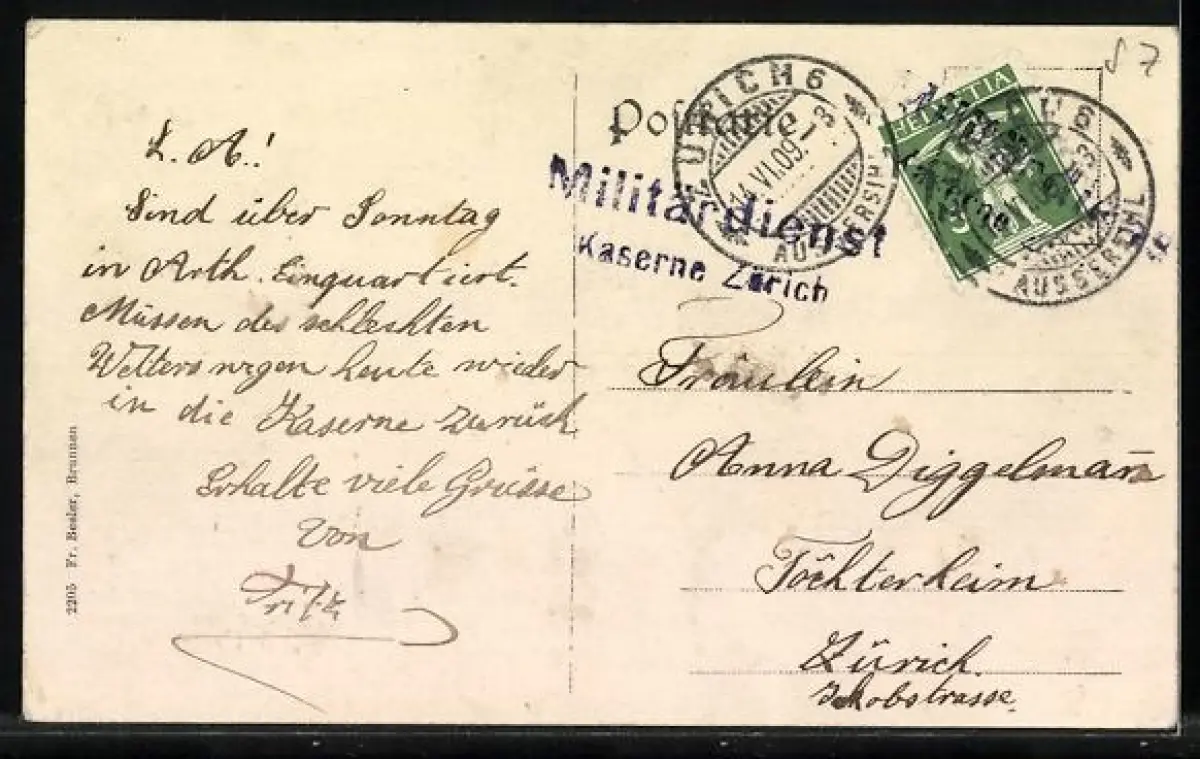 L. A.!
Sind über Sonntag
in Arth. Einquartiert.
Müssen des schlechten
Wetters wegen heute wieder
in die Kaserne zurück.
Erhalte viele Grüsse
von
Fritz
2205 Fr. Besler, Brunnen
Postkarte
ZÜRICH 6
14.VI.09. 8
AUSSERSIHL
Militärdienst
Kaserne Zürich
HELVETIA
5
AUSSERSIHL
87
Fräulein
Anna Diggelmann
Töchterheim
Zürich.
Jakobstrasse.